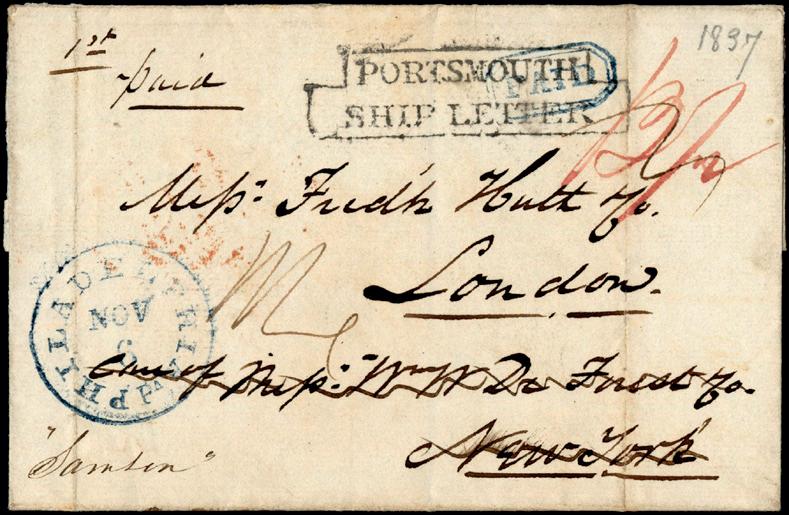 1st
paid
1837
PORTSMOUTH
SHIP LETTER
PAID
Messs. Fredk Hutt &Co.
London.
PHILADELPHIA Pa
NOV
6
Care of Messs. Wm W De Forest &Co.
New York
"Samson"